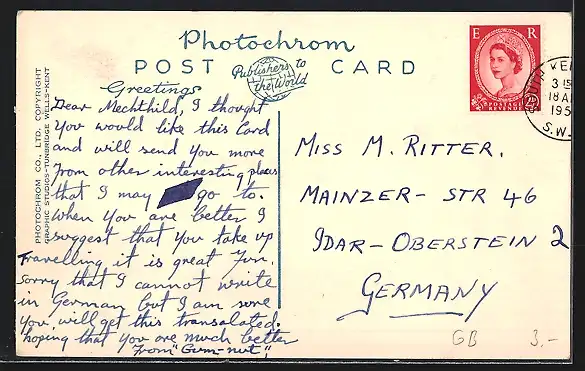 Photochrom
POST CARD
Publishers to the World
PHOTOCHROM CO., LTD. COPYRIGHT
GRAPHIC STUDIOS-TUNBRIDGE WELLS-KENT
E R
POSTAGE
REVENUE
3 15
18 A
195
S.W.
Greetings
Dear Mechthild, I thought
you would like this Card
and will send you more
from other interesting places
that I may go to.
When you are better I
suggest that you take up
travelling it is great fun.
Sorry that I cannot write
in German but I am sure
you will get this transalated.
hoping that you are much better
From "Gum-nut",
MISS M. RITTER.
MAINZER- STR 46
IDAR-OBERSTEIN 2
GERMANY
GB 3.-